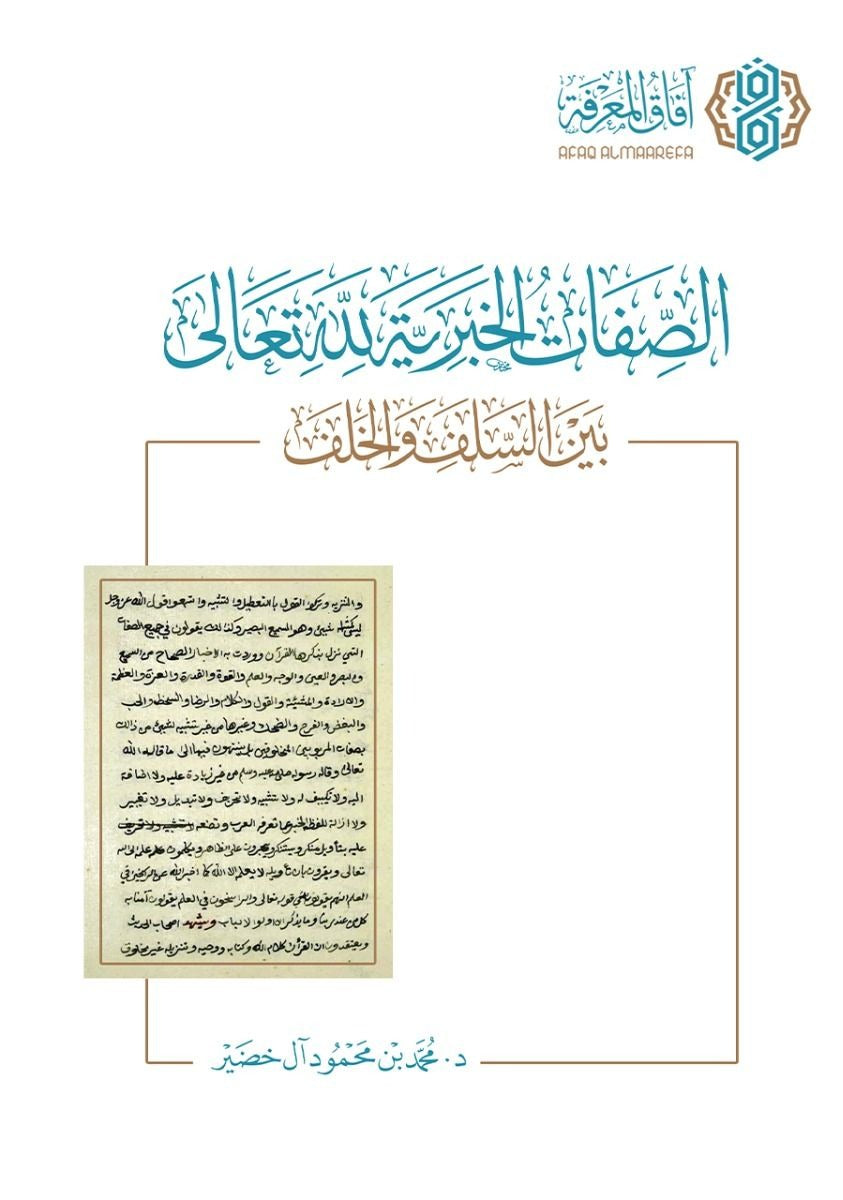 آفاق المعرفة
AFAQ ALMAAREFA
الصِّفَاتُ الخَبَرِيَّةُ لِلَّهِ تَعَالَى
بَيْنَ السَّلَفِ وَالخَلَفِ
والتنزيه وترك القول بالتعطيل والتشبيه واتبعوا قول الله عز وجل
ليس كمثله شيئ وهو السميع البصير وكذلك يقولون في جميع الصفات
التي نزل بذكرها القرآن ووردت به الاخبار الصحاح من السمع
والبصر والعين والوجه والعلم والقوة والقدرة والعزة والعظمة
والارادة والمشيئة والقول والكلام والرضا والسخط والحب
والبغض والفرح والضحك وغيرها من غير تشبيه لشيئ من ذالك
بصفات المربوبين المخلوقين بل ينتهون فيها الى ما قاله الله
تعالى وقاله رسوله صلى الله عليه وسلم من غير زيادة عليه ولا اضافة
اليه ولا تكييف له ولا تشبيه ولا تحريف ولا تبديل ولا تغيير
ولا ازالة للفظ الخبر عما تعرفه العرب وتضعه
عليه بتأويل منكر ويجرون على الظاهر ويكلون علمه الى الله
تعالى ويقرون بان تأويله لا يعلمه الا الله كما اخبر الله عن الراسخين في
العلم انهم يقولون في قوله تعالى والراسخون في العلم يقولون آمنا به
كل من عند ربنا وما يذكر الا اولوا لالباب ويشهد اصحاب الحديث
ويعتقدون ان القرآن كلام الله وكتابه ووحيه وتنزيله غير مخلوق
د. مُحَمَّد بْن مَحْمُود آل خضَيْر